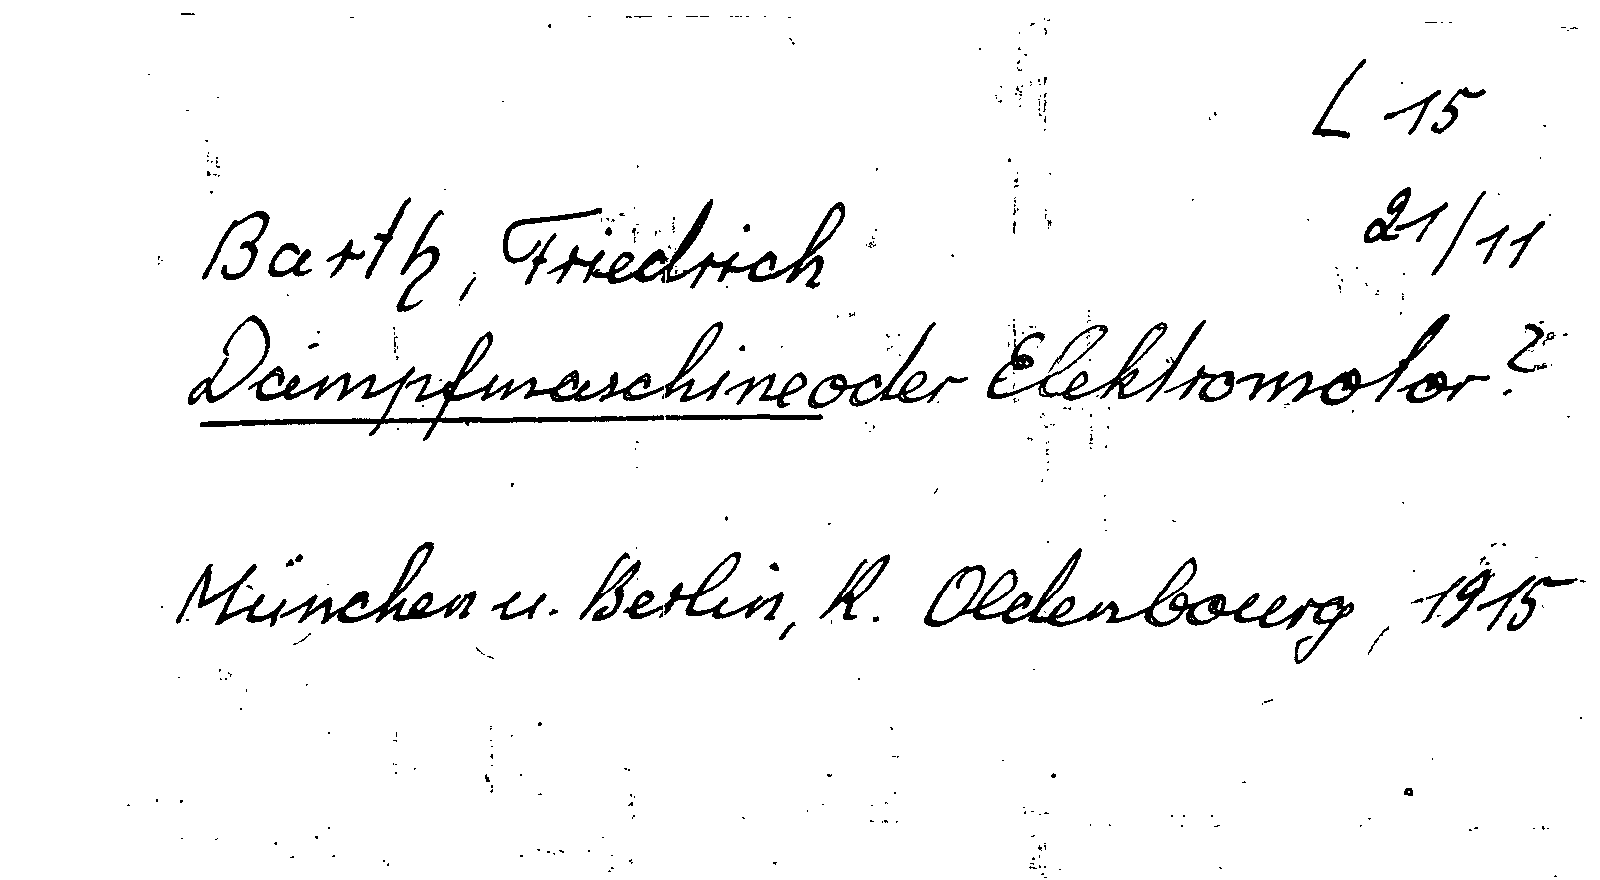 L 15
21/11
Barth, Friedrich
Dampfmaschine oder Elektromotor?
München u. Berlin, R. Oldenbourg, 1915